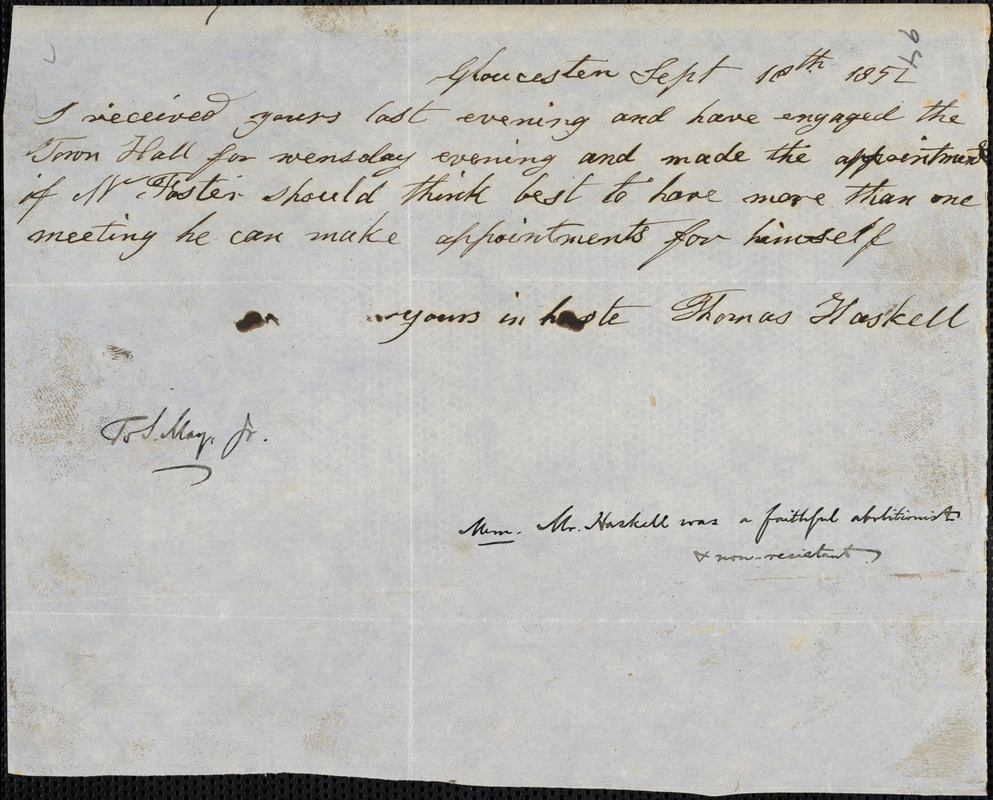 94
Gloucester Sept 18th 1852
I received yours last evening and have engaged the
Town Hall for wensday evening and made the appointment
if Mr Foster should think best to have more than one
meeting he can make appointments for himself
yours in haste Thomas Haskell
To S. May, Jr.
Mem. Mr. Haskell was a faithful abolitionist
& non-resistant